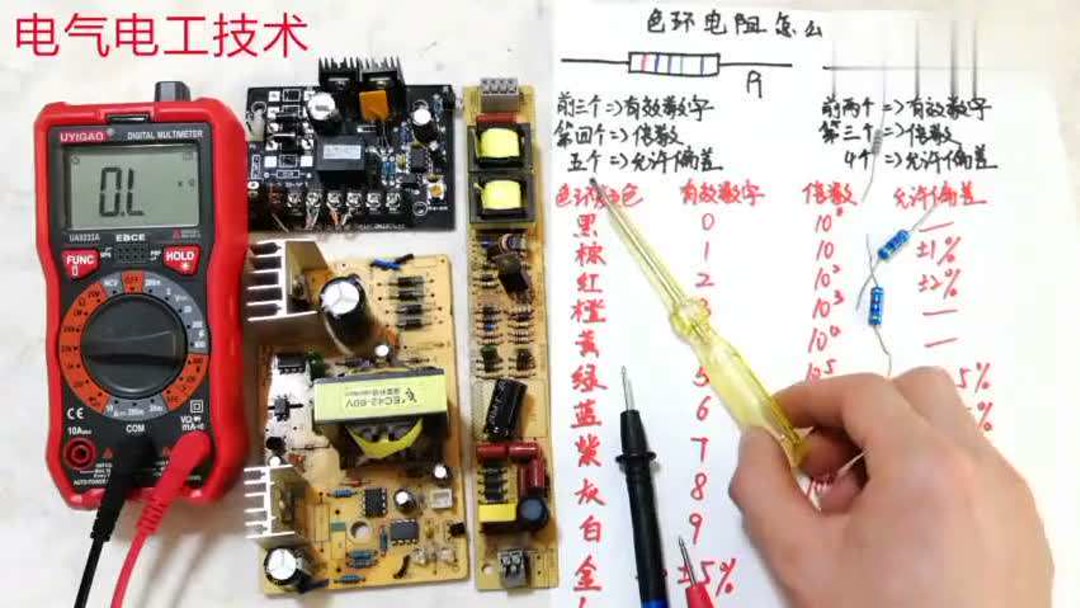 电气电工技术
色环电阻怎么
R
前三个=>有效数字
第四个=>倍数
五个=>允许偏差
前两个=>有效数字
第三个=>倍数
4个=>允许偏差
有效数字 倍数 允许偏差
黑 0 —
棕 1 10 ±1%
红 2 10² ±2%
橙 3 10³ —
黄 —
绿 5 10⁵ 5%
蓝 6 %
紫 7
灰 8
白 9
金 ±5%
UYIGAO
DIGITAL MULTIMETER
0.L
UA9233A
EBCE
FUNC
HOLD
CE
10A
COM
VΩ
mA
EC42-60V